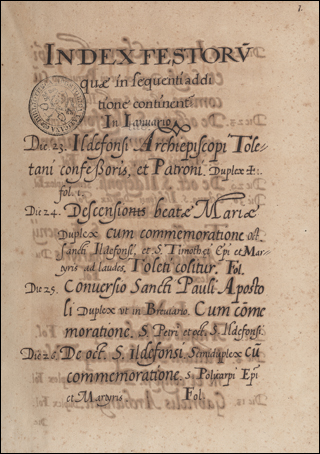 1.
INDEX FESTORŪ
quæ in sequenti addi
tione continent
In Ianuario.
Die 23. Ildefonsi Archiepiscopi Tole-
tani confessoris, et Patroni. Duplex
fol. 1.
Die 24. Descensionis beatæ Mariæ
Duplex cum commemoratione oct.
Sancti Ildefonsi, et S. Timothei Epi et Mar-
tyris ad laudes. Toleti colitur. Fol.
Die 25. Conversio Sancti Pauli Aposto
li Duplex ut in Breviario. Cum cōme
moratione. S. Petri et oct. S. Ildefonsi.
Die 26. De oct. S. Ildefonsi. Semiduplex cū
commemoratione. S. Policarpi Epi
et Martyris. Fol.